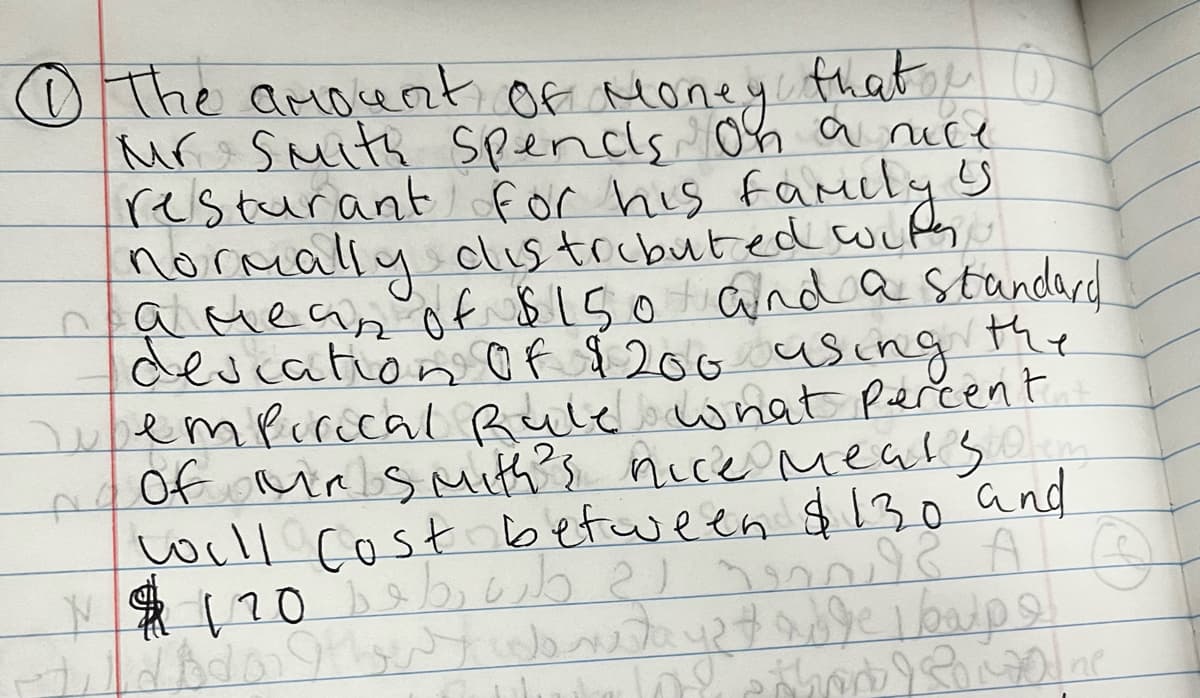 ① The amount of Money that
Mr Smith Spends On a nice
resturant for his family is
normally distributed with
a Mean of $150 and a standard
deviation Of $200 using the
empirical Rule what percent
Of Mr Smith's nice Meals
will Cost between $130 and
$170